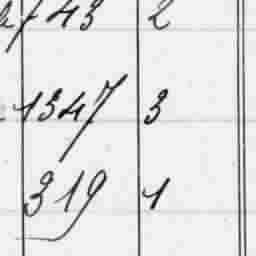 43 2
1347 3
319 1